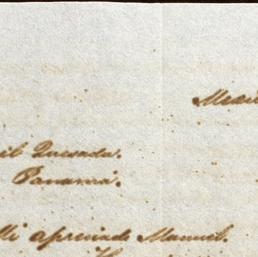 Mexi
il Quesada.
Panamá.
Mi apreciado Manuel.